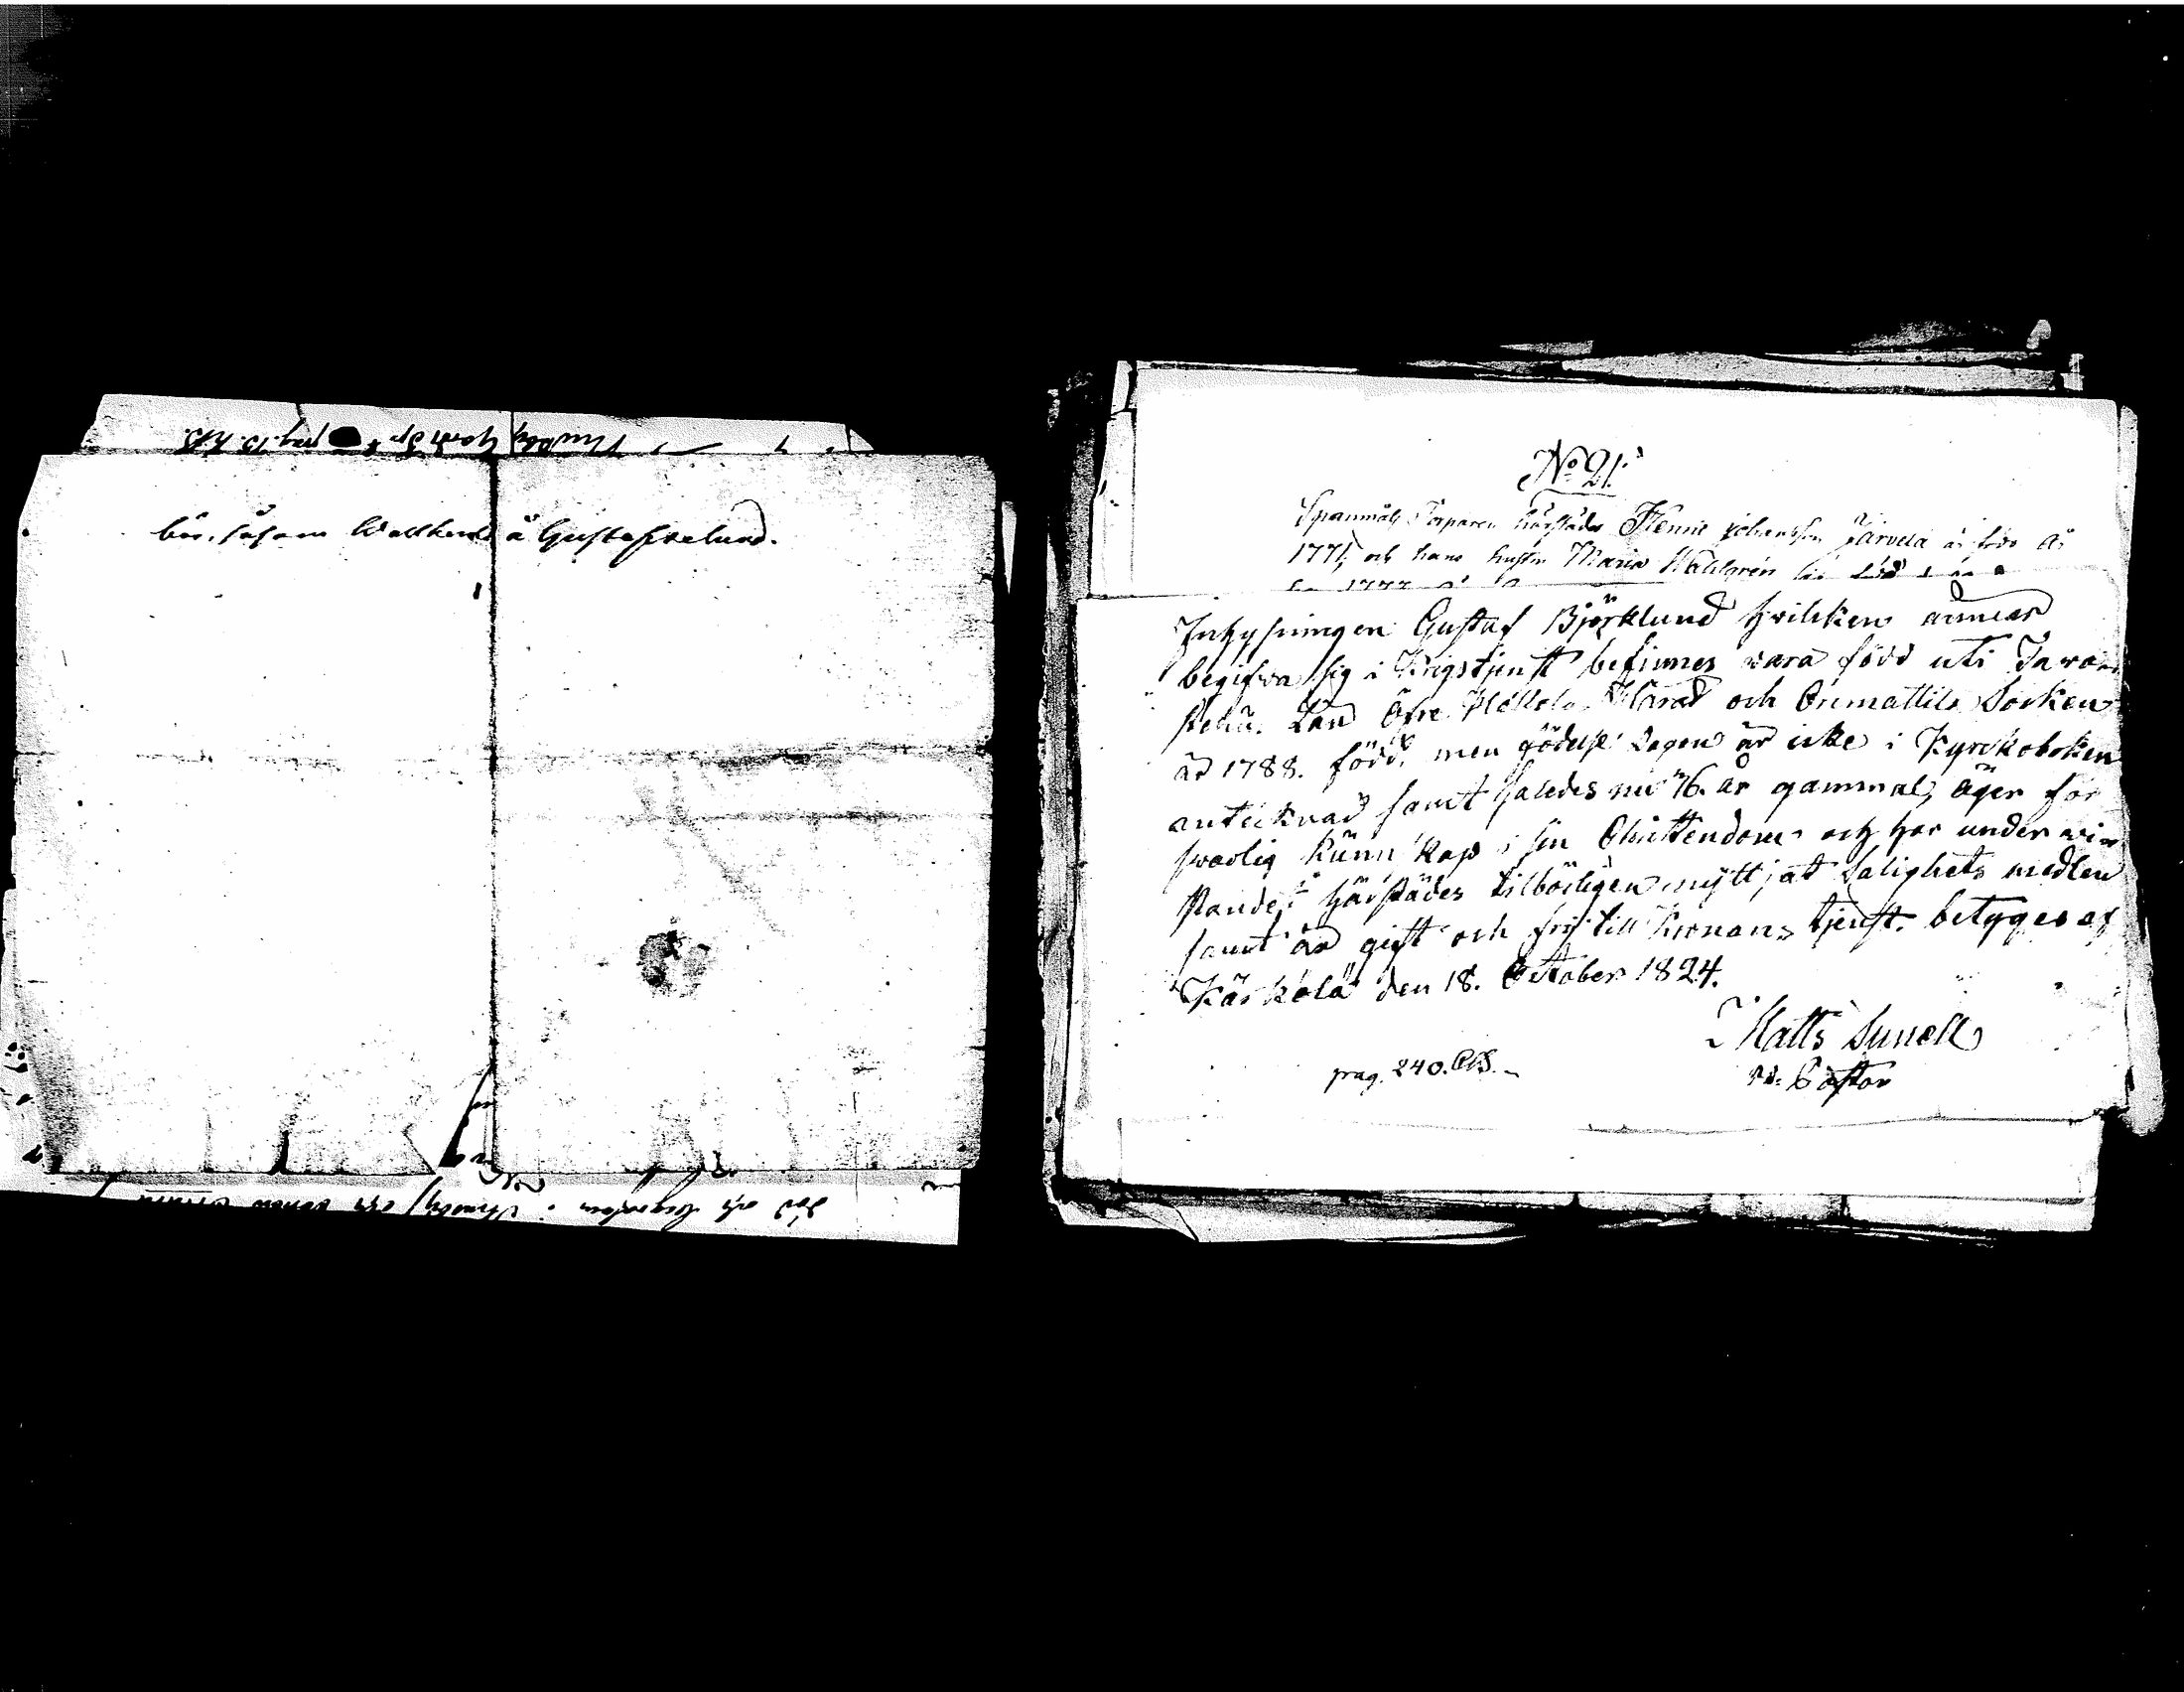 bör, såsom Wallherde å Gustafsvelund.
No 21.
Spannmåls Torparen härstädes Henric Johansson Järvelä är född År
1771, och hans hustru Maria Wahlgrén
Inhysningen Gustaf Björklund hvilcken ämnar
begifva sig i Krigstjenst befinnes vara född uti Tava
stehu. Län Öfre Hollola Härad och Orimattila Socken
år 1788. född, men födelse dagen är icke i Kyrckoboken
antecknad samt således nu 36. år gammal, äger för
svarlig kunnskap i sin Christendom och har under vi
stande härstädes tilbörligen nyttjat Salighets medlen
samt är gift och frij till Kronans tjenst. betyges af
Kärkölä den 18. October 1824.
Matts Sunell
v.d. Pastor
pag. 240.